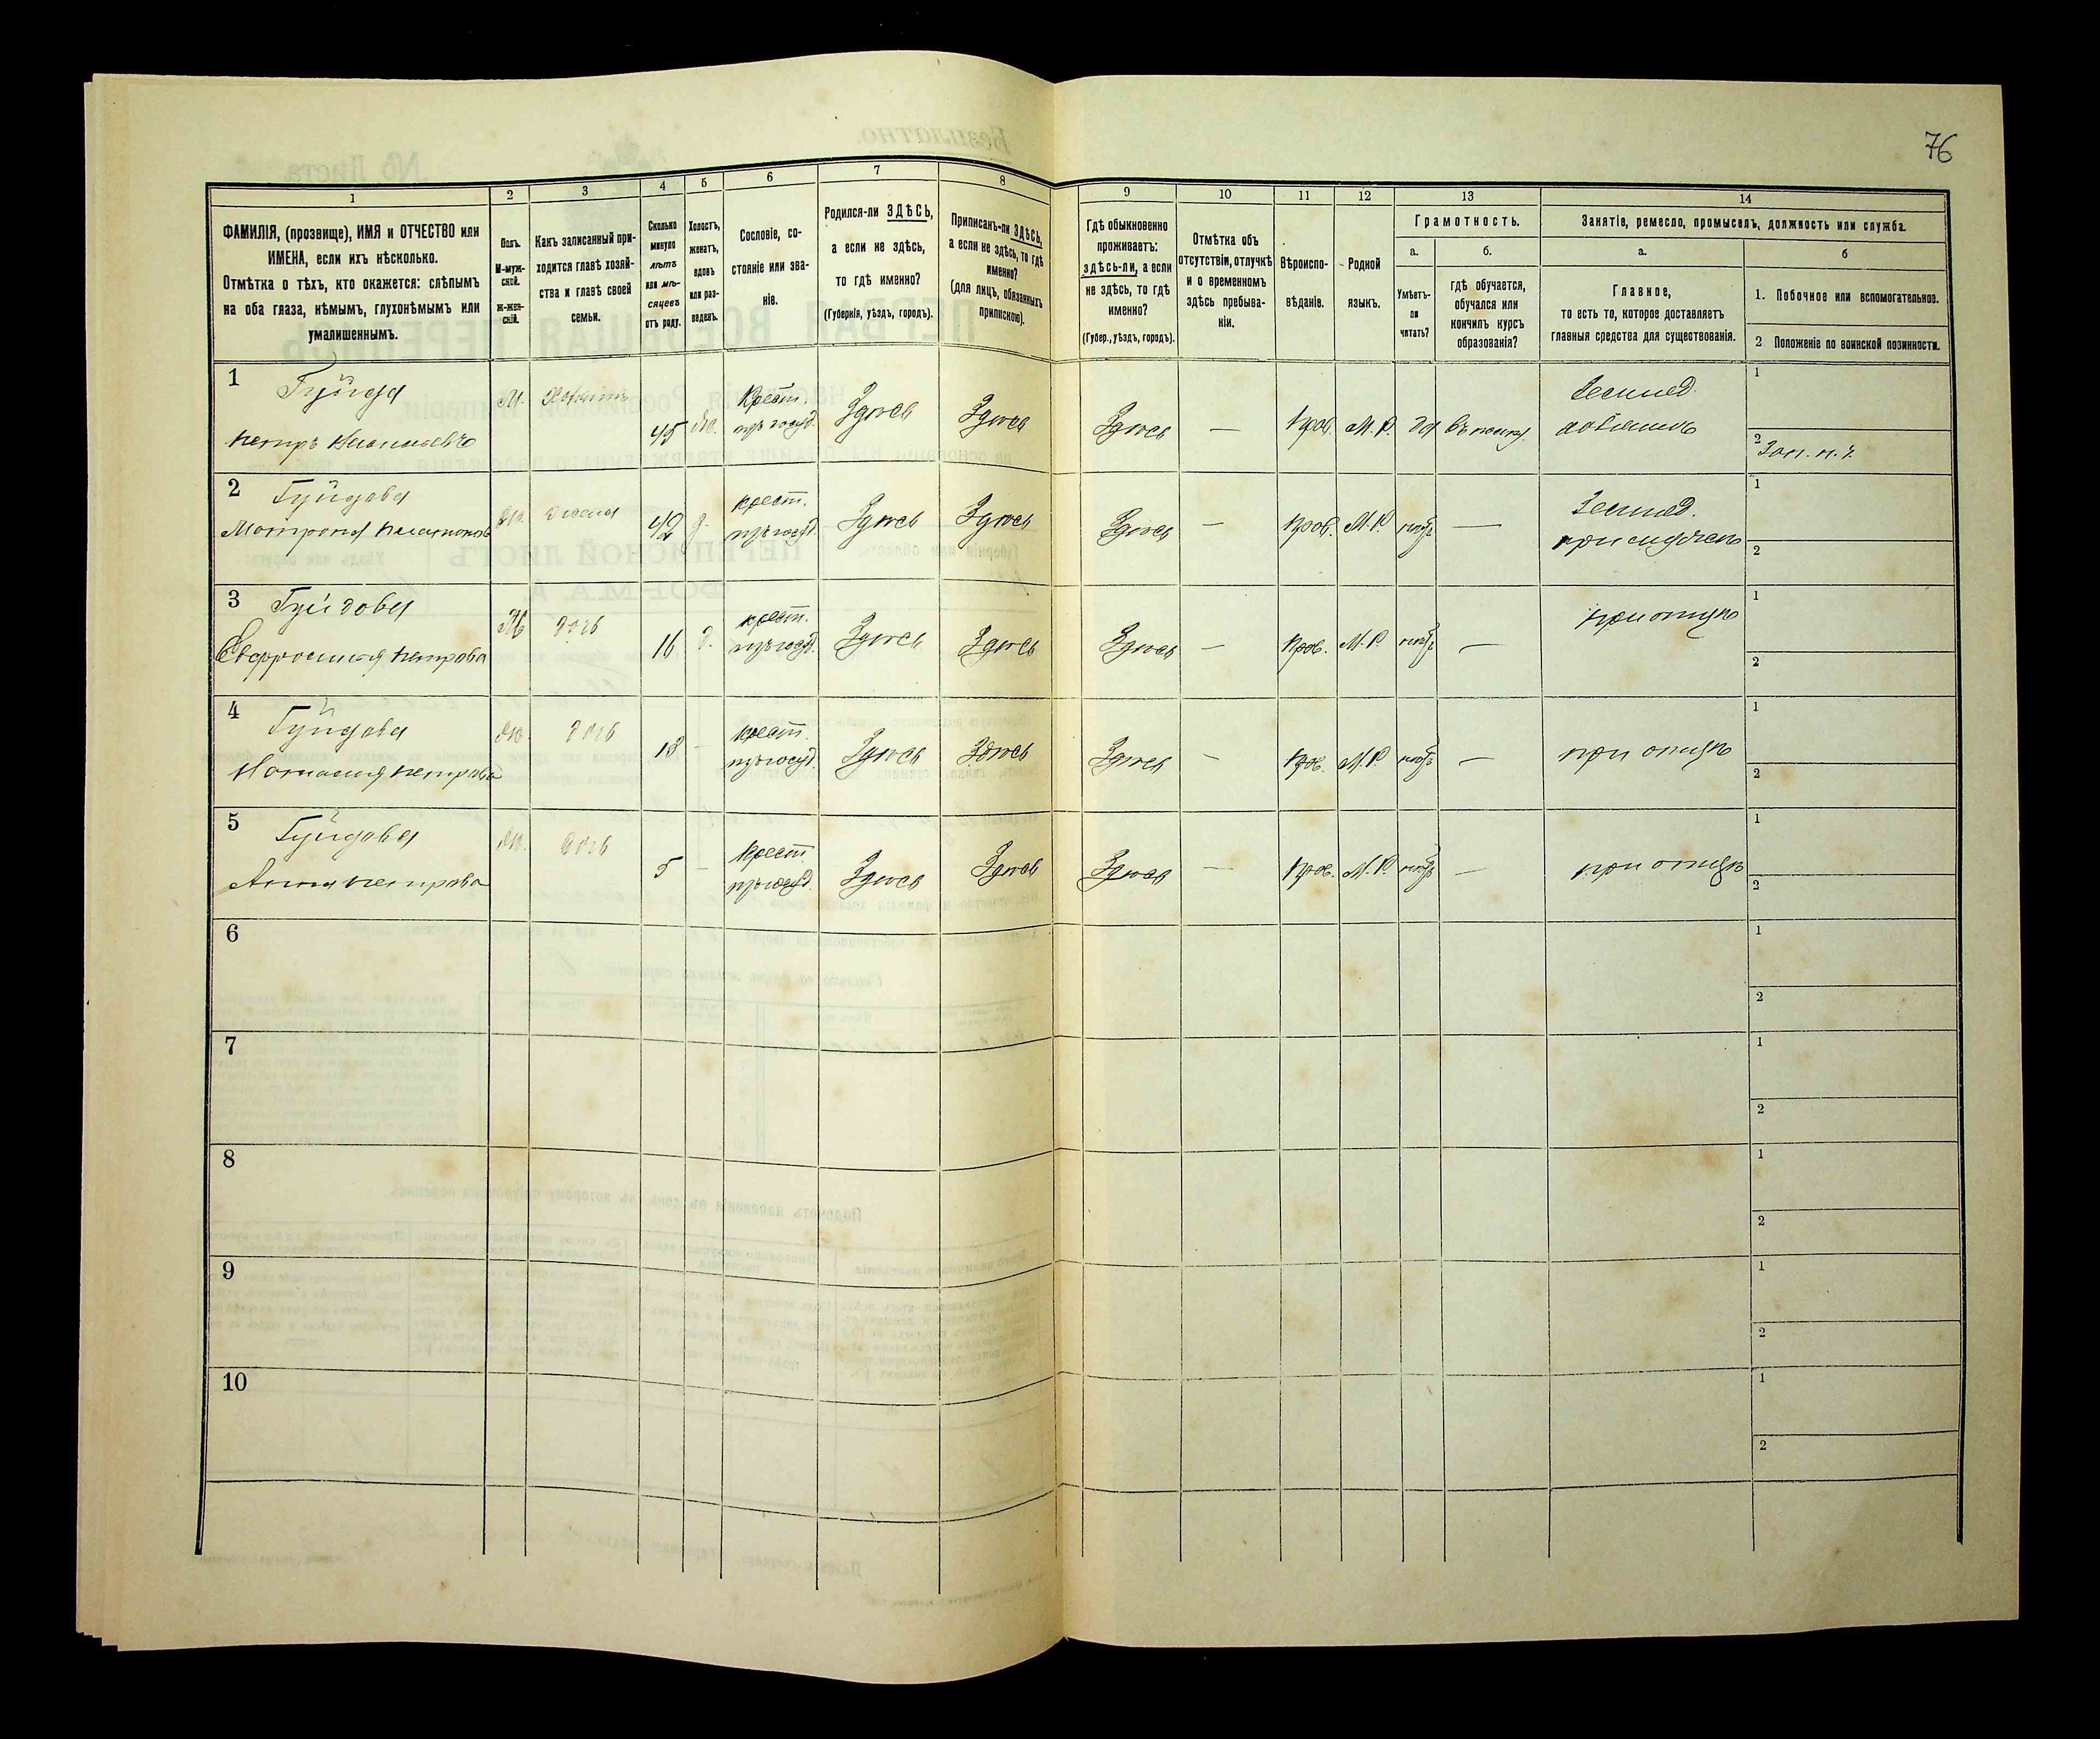 76
1 2 3 4 5 6 7 8 9 10 11 12 13 14
ФАМИЛІЯ, (прозвище), ИМЯ и ОТЧЕСТВО или
ИМЕНА, если ихъ нѣсколько.
Отмѣтка о тѣхъ, кто окажется: слѣпымъ
на оба глаза, нѣмымъ, глухонѣмымъ или
умалишеннымъ.
Полъ.
М-муж-
ской.
Ж-жен-
скій.
Какъ записанный при-
ходится главѣ хозяй-
ства и главѣ своей
семьи.
Сколько
минуло
лѣтъ
или мѣ-
сяцевъ
отъ роду.
Холостъ,
женатъ,
вдовъ
или раз-
веденъ.
Сословіе, со-
стояніе или зва-
ніе.
Родился-ли ЗДѢСЬ,
а если не здѣсь,
то гдѣ именно?
(Губернія, уѣздъ, городъ).
Приписанъ-ли ЗДѢСЬ,
а если не здѣсь, то гдѣ
именно?
(для лицъ, обязанныхъ
припискою).
Гдѣ обыкновенно
проживаетъ:
здѣсь-ли, а если
не здѣсь, то гдѣ
именно?
(Губер., уѣздъ, городъ).
Отмѣтка объ
отсутствіи, отлучкѣ
и о временномъ
здѣсь пребыва-
ніи.
Вѣроиспо-
вѣданіе.
Родной
языкъ.
Грамотность.
а.
Умѣетъ-
ли
читать?
б.
гдѣ обучается,
обучался или
кончилъ курсъ
образованія?
Занятіе, ремесло, промыселъ, должность или служба.
а.
Главное,
то есть то, которое доставляетъ
главныя средства для существованія.
б
1. Побочное или вспомогательное.
2 Положеніе по воинской повинности.
1 Гуйда
Петръ
М. Хозяинъ 45 Крест. изъ госуд. Здѣсь Здѣсь Здѣсь — Прав. М.Р. да
Землед.
1
2 Зап. н. ч.
2 Гуйдова
Матрона
Жена 42 Крест. изъ госуд. Здѣсь Здѣсь Здѣсь — Прав. М.Р. нѣтъ —
Землед.
при мужѣ
1
2
3 Гуйдова
Евфросинія Петрова
Ж дочь 16 д. Крест. изъ госуд. Здѣсь Здѣсь Здѣсь — Прав. М.Р. нѣтъ —
при отцѣ
1
2
4 Гуйдова
Наталия Петрова
Ж. дочь 13 — Крест. изъ госуд. Здѣсь Здѣсь Здѣсь — Прав. М.Р. нѣтъ —
при отцѣ
1
2
5 Гуйдова
Анна Петрова
Ж. дочь 5 — Крест. изъ госуд. Здѣсь Здѣсь Здѣсь — Прав. М.Р. нѣтъ —
при отцѣ
1
2
6
1
2
7
1
2
8
1
2
9
1
2
10
1
2